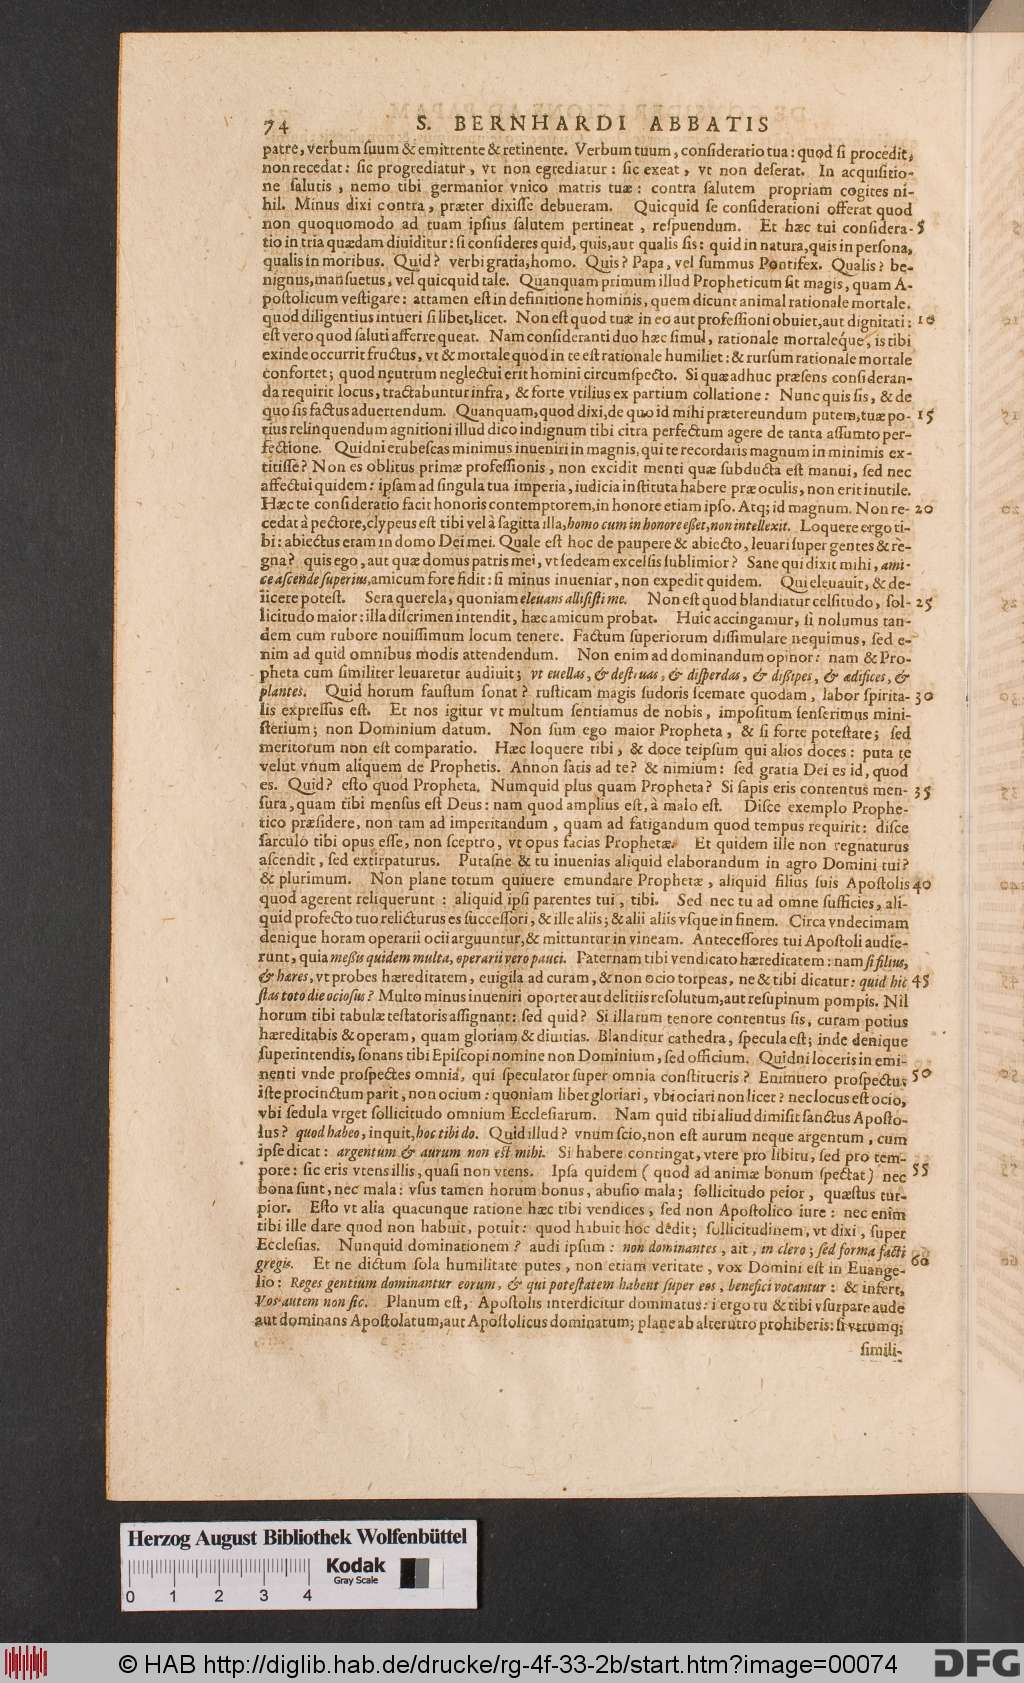 74 S. BERNHARDI ABBATIS
patre, verbum ſuum & emittente & retinente. Verbum tuum, conſideratio tua: quod ſi procedit,
non recedat: ſic progrediatur, vt non egrediatur: ſic exeat, vt non deſerat. In acquiſitio-
ne ſalutis, nemo tibi germanior vnico matris tuæ: contra ſalutem propriam cogites ni-
hil. Minus dixi contra, præter dixiſſe debueram. Quicquid ſe conſiderationi offerat quod
non quoquomodo ad tuam ipſius ſalutem pertineat, reſpuendum. Et hæc tui conſidera- 5
tio in tria quædam diuiditur: ſi conſideres quid, quis, aut qualis ſis: quid in natura, quis in perſona,
qualis in moribus. Quid? verbi gratia, homo. Quis? Papa, vel ſummus Pontifex. Qualis? be-
nignus, manſuetus, vel quicquid tale. Quanquam primum illud Propheticum ſit magis, quam A-
poſtolicum veſtigare: attamen eſt in definitione hominis, quem dicunt animal rationale mortale.
quod diligentius intueri ſi libet, licet. Non eſt quod tuæ in eo aut profeſſioni obuiet, aut dignitati: 10
eſt vero quod ſaluti afferre queat. Nam conſideranti duo hæc ſimul, rationale mortaleque, is tibi
exinde occurrit fructus, vt & mortale quod in te eſt rationale humiliet: & rurſum rationale mortale
confortet; quod neutrum neglectui erit homini circumſpecto. Si quæ adhuc præſens conſideran-
da requirit locus, tractabuntur infra, & forte vtilius ex partium collatione: Nunc quis ſis, & de
quo ſis factus aduertendum. Quanquam, quod dixi, de quo id mihi prætereundum putem, tuæ po- 15
tius relinquendum agnitioni illud dico indignum tibi citra perfectum agere de tanta aſſumto per-
fectione. Quidni erubeſcas minimus inueniri in magnis, qui te recordaris magnum in minimis ex-
titiſſe? Non es oblitus primæ profeſſionis, non excidit menti quæ ſubducta eſt manui, ſed nec
affectui quidem: ipſam ad ſingula tua imperia, iudicia inſtituta habere præ oculis, non erit inutile.
Hæc te conſideratio facit honoris contemptorem, in honore etiam ipſo. Atq; id magnum. Non re- 20
cedat à pectore, clypeus eſt tibi vel à ſagitta illa, homo cum in honore eßet, non intellexit. Loquere ergo ti-
bi: abiectus eram in domo Dei mei. Quale eſt hoc de paupere & abiecto, leuari ſuper gentes & re-
gna? quis ego, aut quæ domus patris mei, vt ſedeam excelſis ſublimior? Sane qui dixit mihi, ami-
ce aſcende ſuperius, amicum fore fidit: ſi minus inueniar, non expedit quidem. Qui eleuauit, & de-
iicere poteſt. Sera querela, quoniam eleuans alliſiſti me. Non eſt quod blandiatur celſitudo, ſol- 25
licitudo maior: illa diſcrimen intendit, hæc amicum probat. Huic accingamur, ſi nolumus tan-
dem cum rubore nouiſſimum locum tenere. Factum ſuperiorum diſſimulare nequimus, ſed e-
nim ad quid omnibus modis attendendum. Non enim ad dominandum opinor: nam & Pro-
pheta cum ſimiliter leuaretur audiuit; vt euellas, & deſtruas, & diſperdas, & dißipes, & ædifices, &
plantes. Quid horum fauſtum ſonat? ruſticam magis ſudoris ſcemate quodam, labor ſpirita- 30
lis expreſſus eſt. Et nos igitur vt multum ſentiamus de nobis, impoſitum ſenſerimus mini-
ſterium; non Dominium datum. Non ſum ego maior Propheta, & ſi forte poteſtate; ſed
meritorum non eſt comparatio. Hæc loquere tibi, & doce teipſum qui alios doces: puta te
velut vnum aliquem de Prophetis. Annon ſatis ad te? & nimium: ſed gratia Dei es id, quod
es. Quid? eſto quod Propheta. Numquid plus quam Propheta? Si ſapis eris contentus men- 35
ſura, quam tibi menſus eſt Deus: nam quod amplius eſt, à malo eſt. Diſce exemplo Prophe-
tico præſidere, non tam ad imperitandum, quam ad fatigandum quod tempus requirit: diſce
ſarculo tibi opus eſſe, non ſceptro, vt opus facias Prophetæ. Et quidem ille non regnaturus
aſcendit, ſed extirpaturus. Putaſne & tu inuenias aliquid elaborandum in agro Domini tui?
& plurimum. Non plane totum quiuere emundare Prophetæ, aliquid filius ſuis Apoſtolis 40
quod agerent reliquerunt: aliquid ipſi parentes tui, tibi. Sed nec tu ad omne ſufficies, ali-
quid profecto tuo relicturus es ſucceſſori, & ille aliis; & alii aliis vſque in finem. Circa vndecimam
denique horam operarii ocii arguuntur, & mittuntur in vineam. Anteceſſores tui Apoſtoli audie-
runt, quia meßis quidem multa, operarii vero pauci. Paternam tibi vendicato hæreditatem: nam ſi filius,
& hæres, vt probes hæreditatem, euigila ad curam, & non ocio torpeas, ne & tibi dicatur: quid hic 45
ſtas toto die ocioſus? Multo minus inueniri oportet aut delitiis reſolutum, aut reſupinum pompis. Nil
horum tibi tabulæ teſtatoris aſſignant: ſed quid? Si illarum tenore contentus ſis, curam potius
hæreditabis & operam, quam gloriam & diuitias. Blanditur cathedra, ſpecula eſt; inde denique
ſuperintendis, ſonans tibi Epiſcopi nomine non Dominium, ſed officium. Quidni loceris in emi-
nenti vnde proſpectes omnia, qui ſpeculator ſuper omnia conſtitueris? Enimuero proſpectus 50
iſte procinctum parit, non ocium: quoniam libet gloriari, vbi ociari non licet? nec locus eſt ocio,
vbi ſedula vrget ſollicitudo omnium Eccleſiarum. Nam quid tibi aliud dimiſit ſanctus Apoſto-
lus? quod habeo, inquit, hoc tibi do. Quid illud? vnum ſcio, non eſt aurum neque argentum, cum
ipſe dicat: argentum & aurum non est mihi. Si habere contingat, vtere pro libitu, ſed pro tem-
pore: ſic eris vtens illis, quaſi non vtens. Ipſa quidem (quod ad animæ bonum ſpectat) nec 55
bona ſunt, nec mala: vſus tamen horum bonus, abuſio mala; ſollicitudo peior, quæſtus tur-
pior. Eſto vt alia quacunque ratione hæc tibi vendices, ſed non Apoſtolico iure: nec enim
tibi ille dare quod non habuit, potuit: quod habuit hoc dedit; ſollicitudinem, vt dixi, ſuper
Eccleſias. Nunquid dominationem? audi ipſum: non dominantes, ait, in clero; ſed forma facti
gregis. Et ne dictum ſola humilitate putes, non etiam veritate, vox Domini eſt in Euange- 60
lio: Reges gentium dominantur eorum, & qui poteſtatem habent ſuper eos, benefici vocantur: & infert,
Vos autem non ſic. Planum eſt, Apoſtolis interdicitur dominatus: i ergo tu & tibi vſurpare aude
aut dominans Apoſtolatum, aut Apoſtolicus dominatum; plane ab alterutro prohiberis: ſi vtrumq;
ſimili-
Herzog August Bibliothek Wolfenbüttel
Kodak
Gray Scale
0 1 2 3 4
© HAB http://diglib.hab.de/drucke/rg-4f-33-2b/start.htm?image=00074
DFG